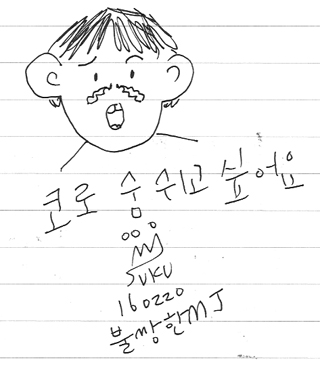 코로 숨 쉬고 싶어요
SUKU
160220
불쌍한MJ